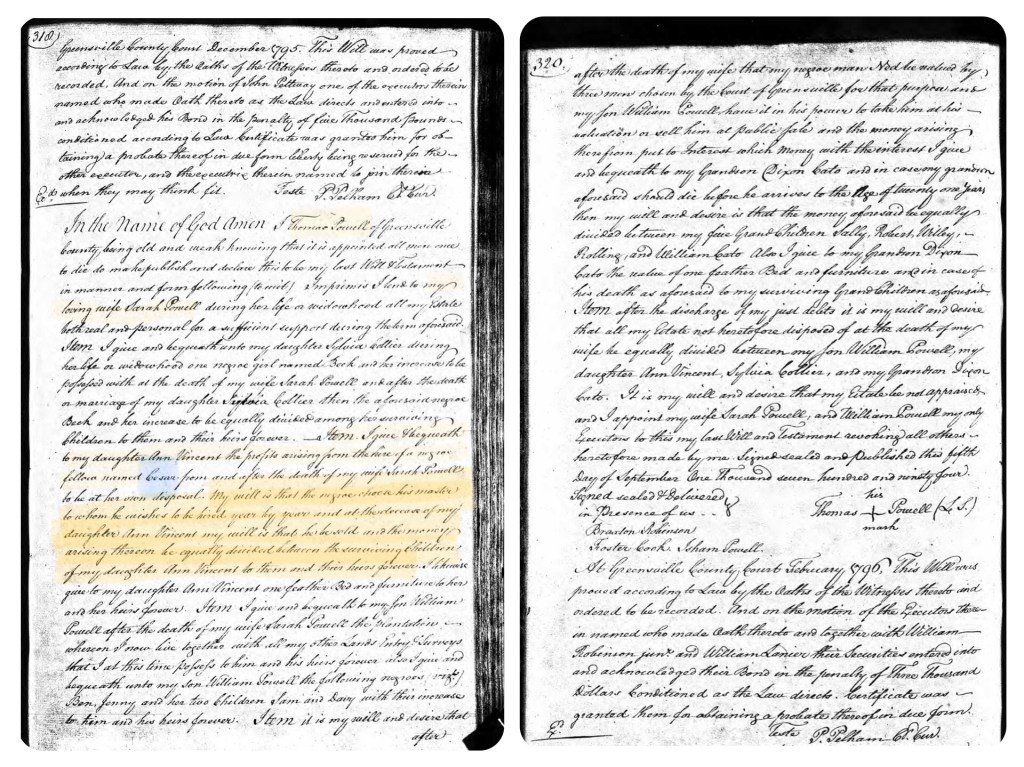 318
Greensville County Court December 1795. This Will was proved
according to Law by the Oaths of the Witnesses thereto and ordered to be
recorded. And on the motion of John Pettway one of the executors therein
named who made Oath thereto as the Law directs and entered into
and acknowledged his Bond in the penalty of five Thousand pounds
conditioned according to Law Certificate was granted him for ob-
taining a probate thereof in due form liberty being reserved for the
other executor, and the executrix therein named to join therein
when they may think fit. Teste P. Pelham Cl. Cur.
In the Name of God Amen I Thomas Powell of Greensville
County being old and weak knowing that it is appointed all men once
to die do make publish and declare this to be my last Will & Testament
in manner and form following (to wit) Imprimis I lend to my
loving wife Sarah Powell during her life or widowhood all my Estate
both real and personal for a sufficient support during the term aforesaid.
Item I give and bequeath unto my daughter Sylvia Collier during
her life or widowhood one negroe girl named Beck and her increase to be
possessed with at the death of my wife Sarah Powell and after the death
or marriage of my daughter Sylvia Collier then the aforesaid negroe
Beck and her increase to be equally divided among her surviving
Children to them and their heirs forever. Item. I give & bequeath
to my daughter Ann Vincent the profits arising from the hire of a negroe
fellow named Cesar from and after the death of my wife Sarah Powell
to be at her own disposal. My will is that the negroe chose his master
to whom he wishes to be hired year by year and at the decease of my
daughter Ann Vincent my will is that he be sold and the money
arising thereon be equally divided between the surviving Children
of my daughter Ann Vincent to them and their heirs forever. I likewise
give to my daughter Ann Vincent one feather Bed and furniture to her
and her heirs forever. Item I give and bequeath to my Son William
Powell after the death of my wife Sarah Powell the Plantation
whereon I now live together with all my other Lands Entry & Surveys
that I at this time possess to him and his heirs forever also I give and
bequeath unto my Son William Powell the following negroes (viz.)
Ben, Jenny and her two Children Sam and Davy with their increase
to him and his heirs forever. Item it is my will and desire that
after
320.
after the death of my wife that my negroe man Ned be valued by
three men chosen by the Court of Greensville for that purpose and
my Son William Powell have it in his power to take him at his
valuation or sell him at public sale and the money arising
therefrom put to Interest which money with the interest I give
and bequeath to my Grandson Dixon Cato and in case my grandson
aforesaid should die before he arrives to the Age of twenty one years
then my will and desire is that the money aforesaid be equally
divided between my five Grand Children Sally, Robert, Wilby,
Rolling, and William Cato Also I give to my Grandson Dixon
Cato the value of one feather Bed and furniture and in case of
his death as aforesaid to my surviving Grand Children as aforesaid.
Item after the discharge of my just debts it is my will and desire
that all my Estate not heretofore disposed of at the death of my
wife be equally divided between my Son William Powell, my
daughter Ann Vincent, Sylvia Collier, and my Grandson Dixon
Cato. It is my will and desire that my Estate be not appraised
and I appoint my wife Sarah Powell, and William Powell my only
Executors to this my last Will and Testament revoking all others
heretofore made by me. Signed sealed and published this fifth
Day of September One Thousand seven hundred and ninety four.
Signed sealed & delivered
in presence of us
his
Thomas + Powell (L.S.)
mark
Braxton Robinson
Foster Cook, Isham Powell.
At Greensville County Court February 1796. This Will was
proved according to Law by the Oaths of the Witnesses thereto and
ordered to be recorded. And on the motion of the Executors there-
in named who made Oath thereto and together with William
Robinson junr. and William Lanier their Securities entered into
and acknowledged their Bond in the penalty of Three Thousand
Dollars Conditioned as the Law directs. Certificate was
granted them for obtaining a probate thereof in due form.
Teste P. Pelham Cl. Cur.